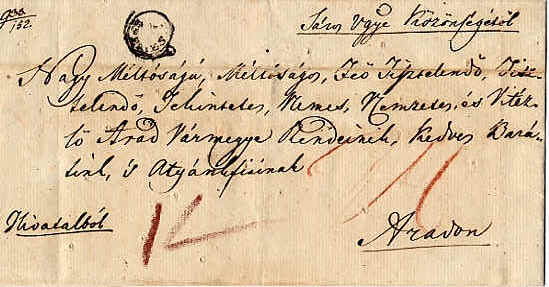 Sáros Vgye Közönségétől
Nagy Méltóságú, Méltóságos, Fő Tisztelendő, Tisz-
telendő, Tekintetes, Nemes, Nemzetes, és Vitéz-
lő Arad Vármegye Rendeinek, Kedves Bará-
tink, és Atyánkfiainak
Hivatalból
Aradon